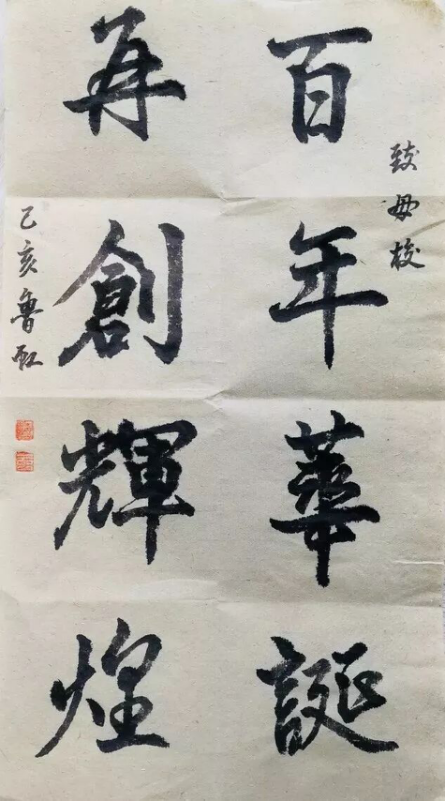 致母校
百年華誕
再創輝煌
己亥魯虹